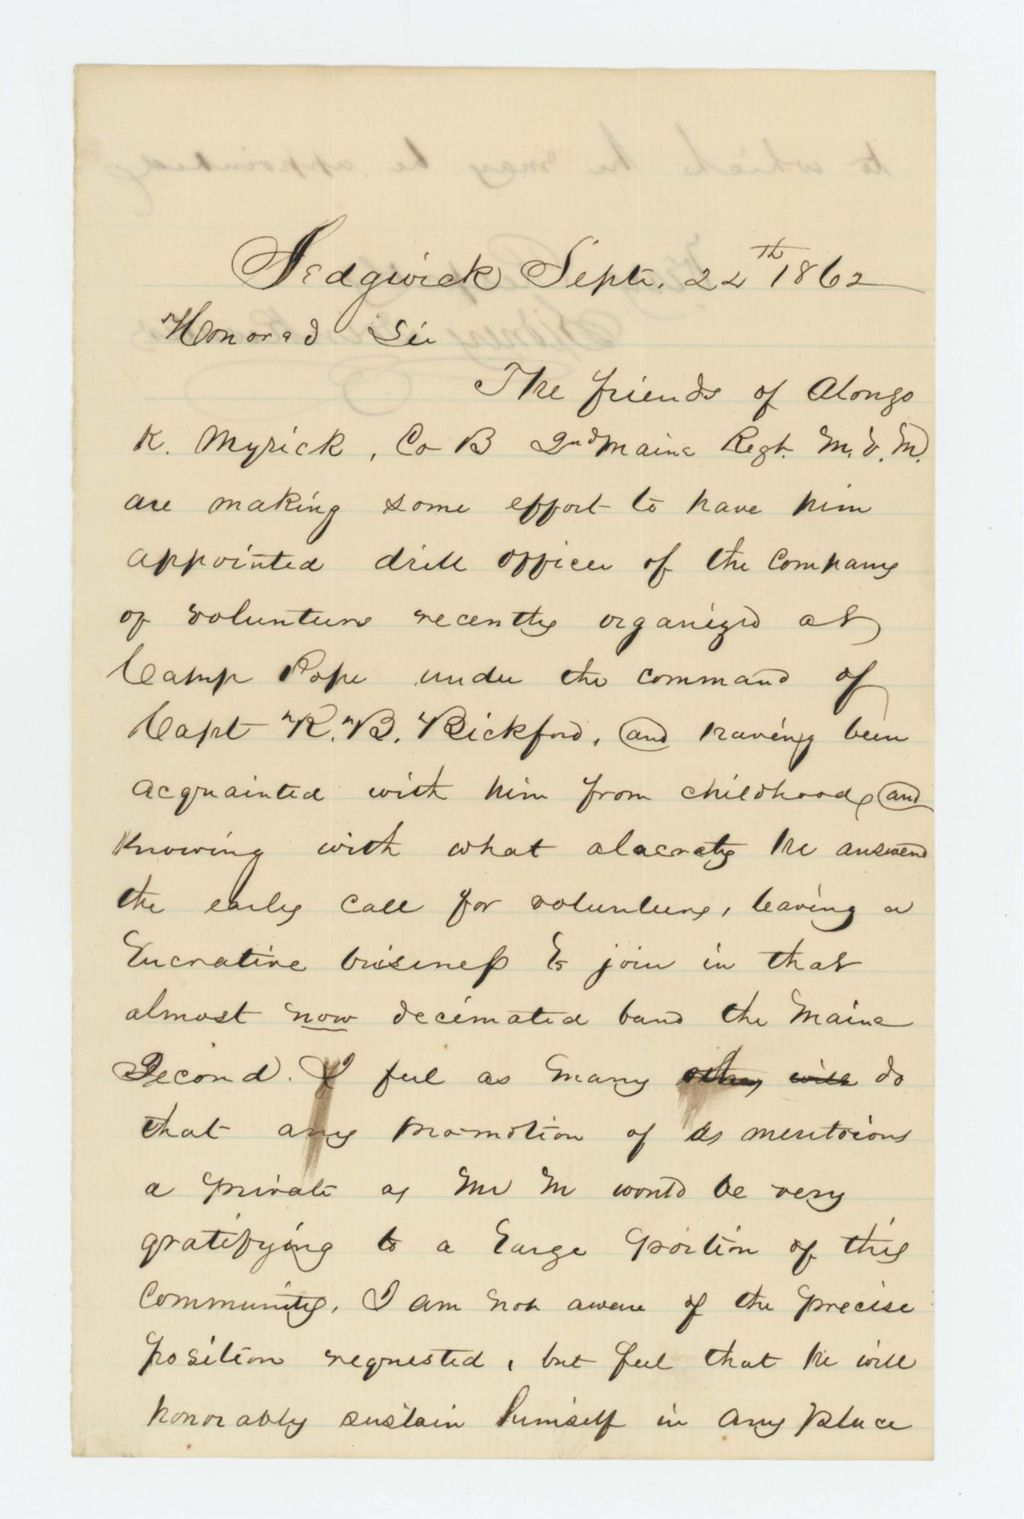 Sedgwick Sept. 24th 1862
Honored Sir
The friends of Alonzo
K. Myrick, Co B 2nd Maine Regt. M.V.M.
are making some effort to have him
appointed drill officer of the Company
of volunteers recently organized at
Camp Pope under the command of
Capt R.B. Bickford, and having been
acquainted with him from childhood, and
knowing with what alacraty he answerd
the early call for volunteers, leaving a
lucrative business to join in that
almost now decimated band the Maine
Second. I feel as many do
that any promotion of as meritorious
a private as Mr M would be very
gratifying to a large portion of this
Community. I am not aware of the precise
position requested, but feel that he will
honorably sustain himself in any place
to which he may be appointed
Sidney